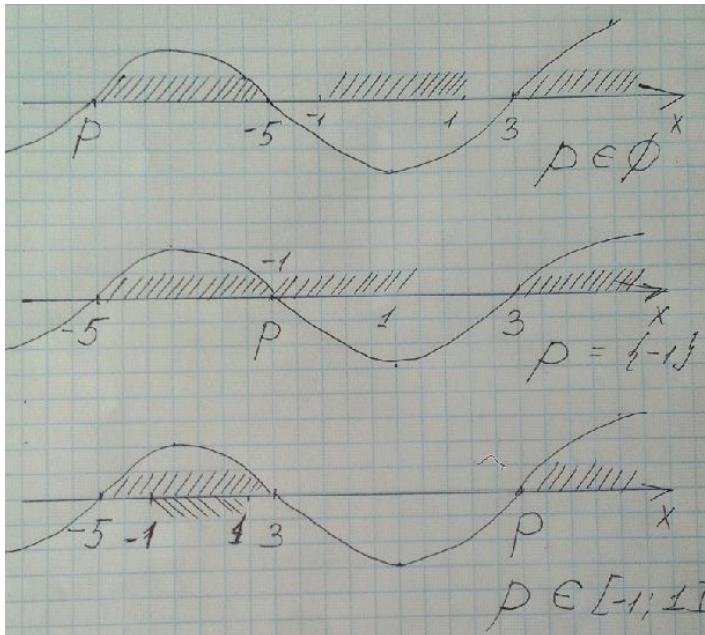 p -5 -1 1 3 x
p ∈ ∅
-1
-5 p 1 3 x
p = {-1}
-5 -1 1 3 p x
p ∈ [-1; 1]